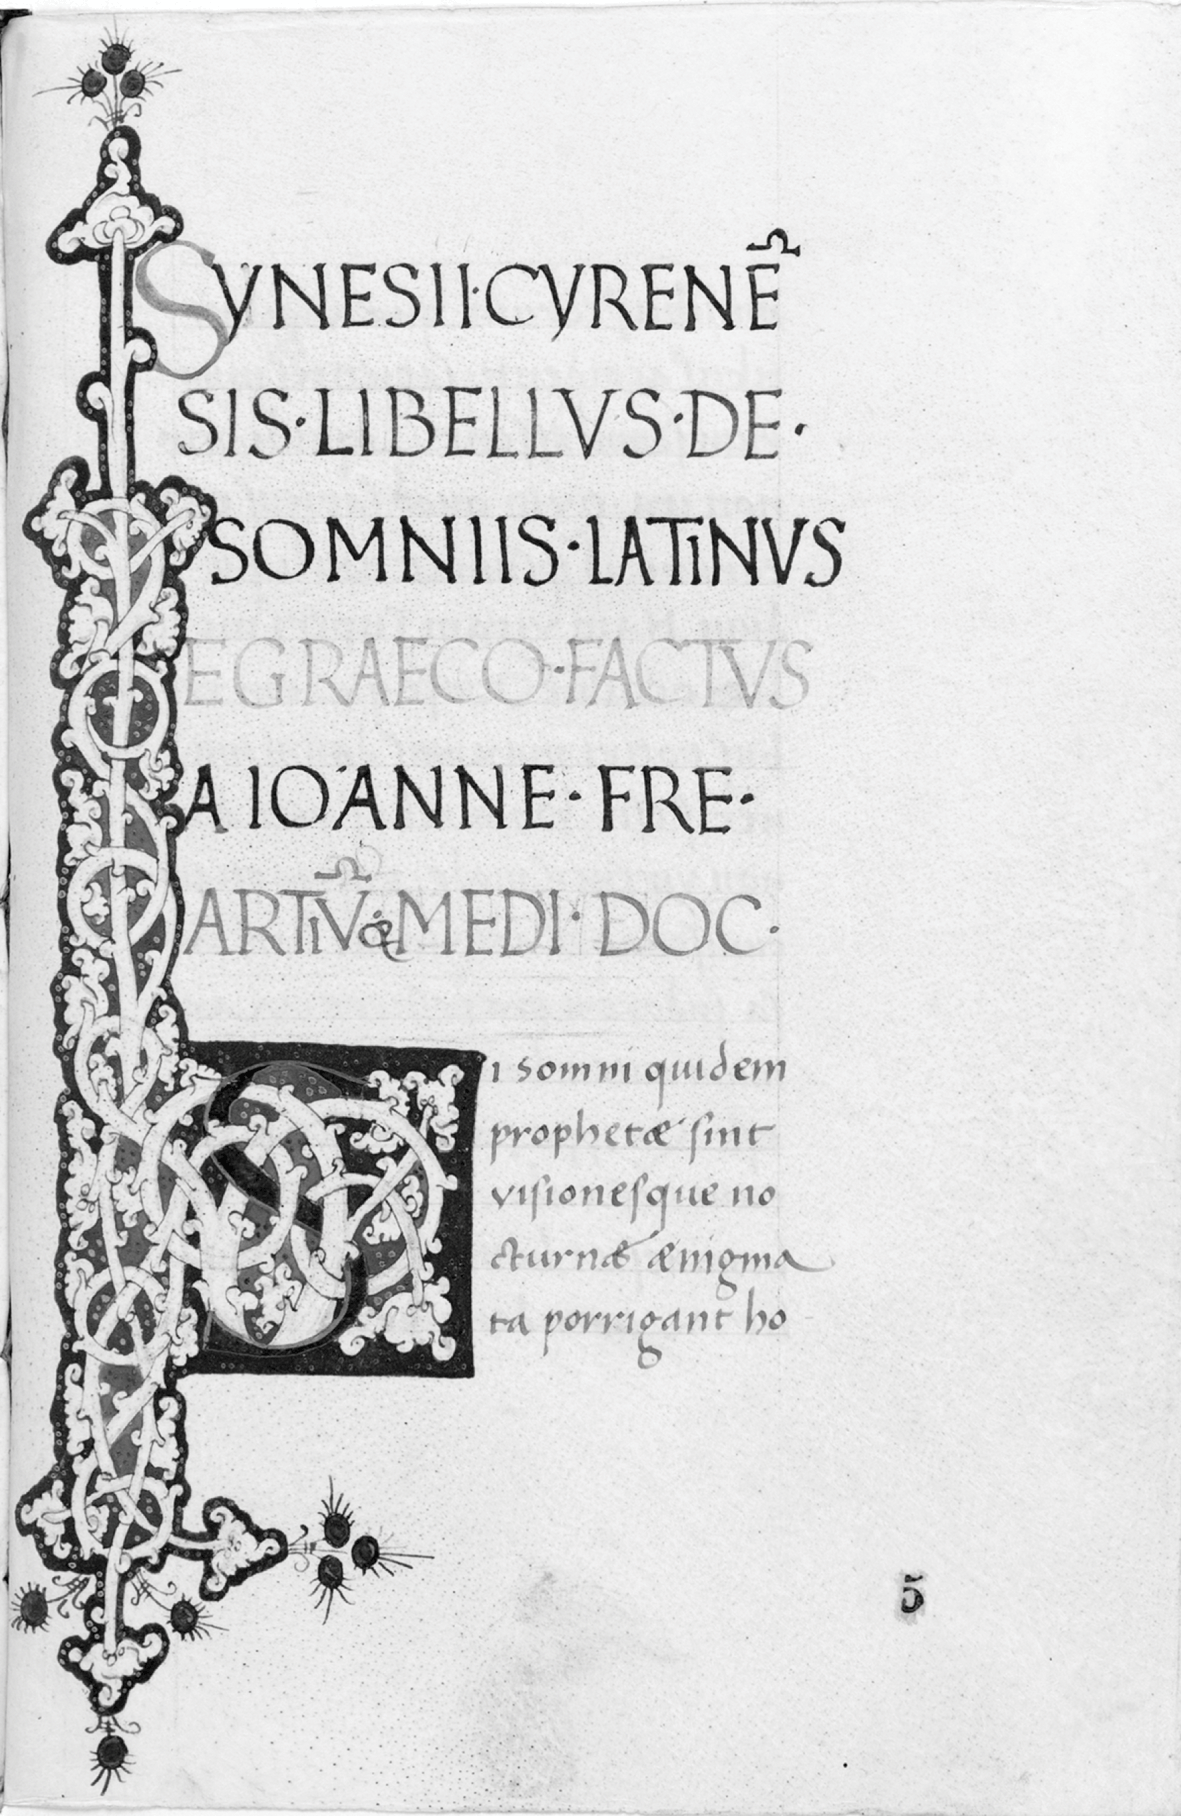 SYNESII·CYRENẼ
SIS·LIBELLVS·DE·
SOMNIIS·LATiNVS
EGRAECO·FACTVS
A IOANNE· FRE·
ARTiṼ&MEDI· DOC·
Si somni quidem
prophetæ sint
visionesque no
cturnæ ænigma
ta porrigant ho
5